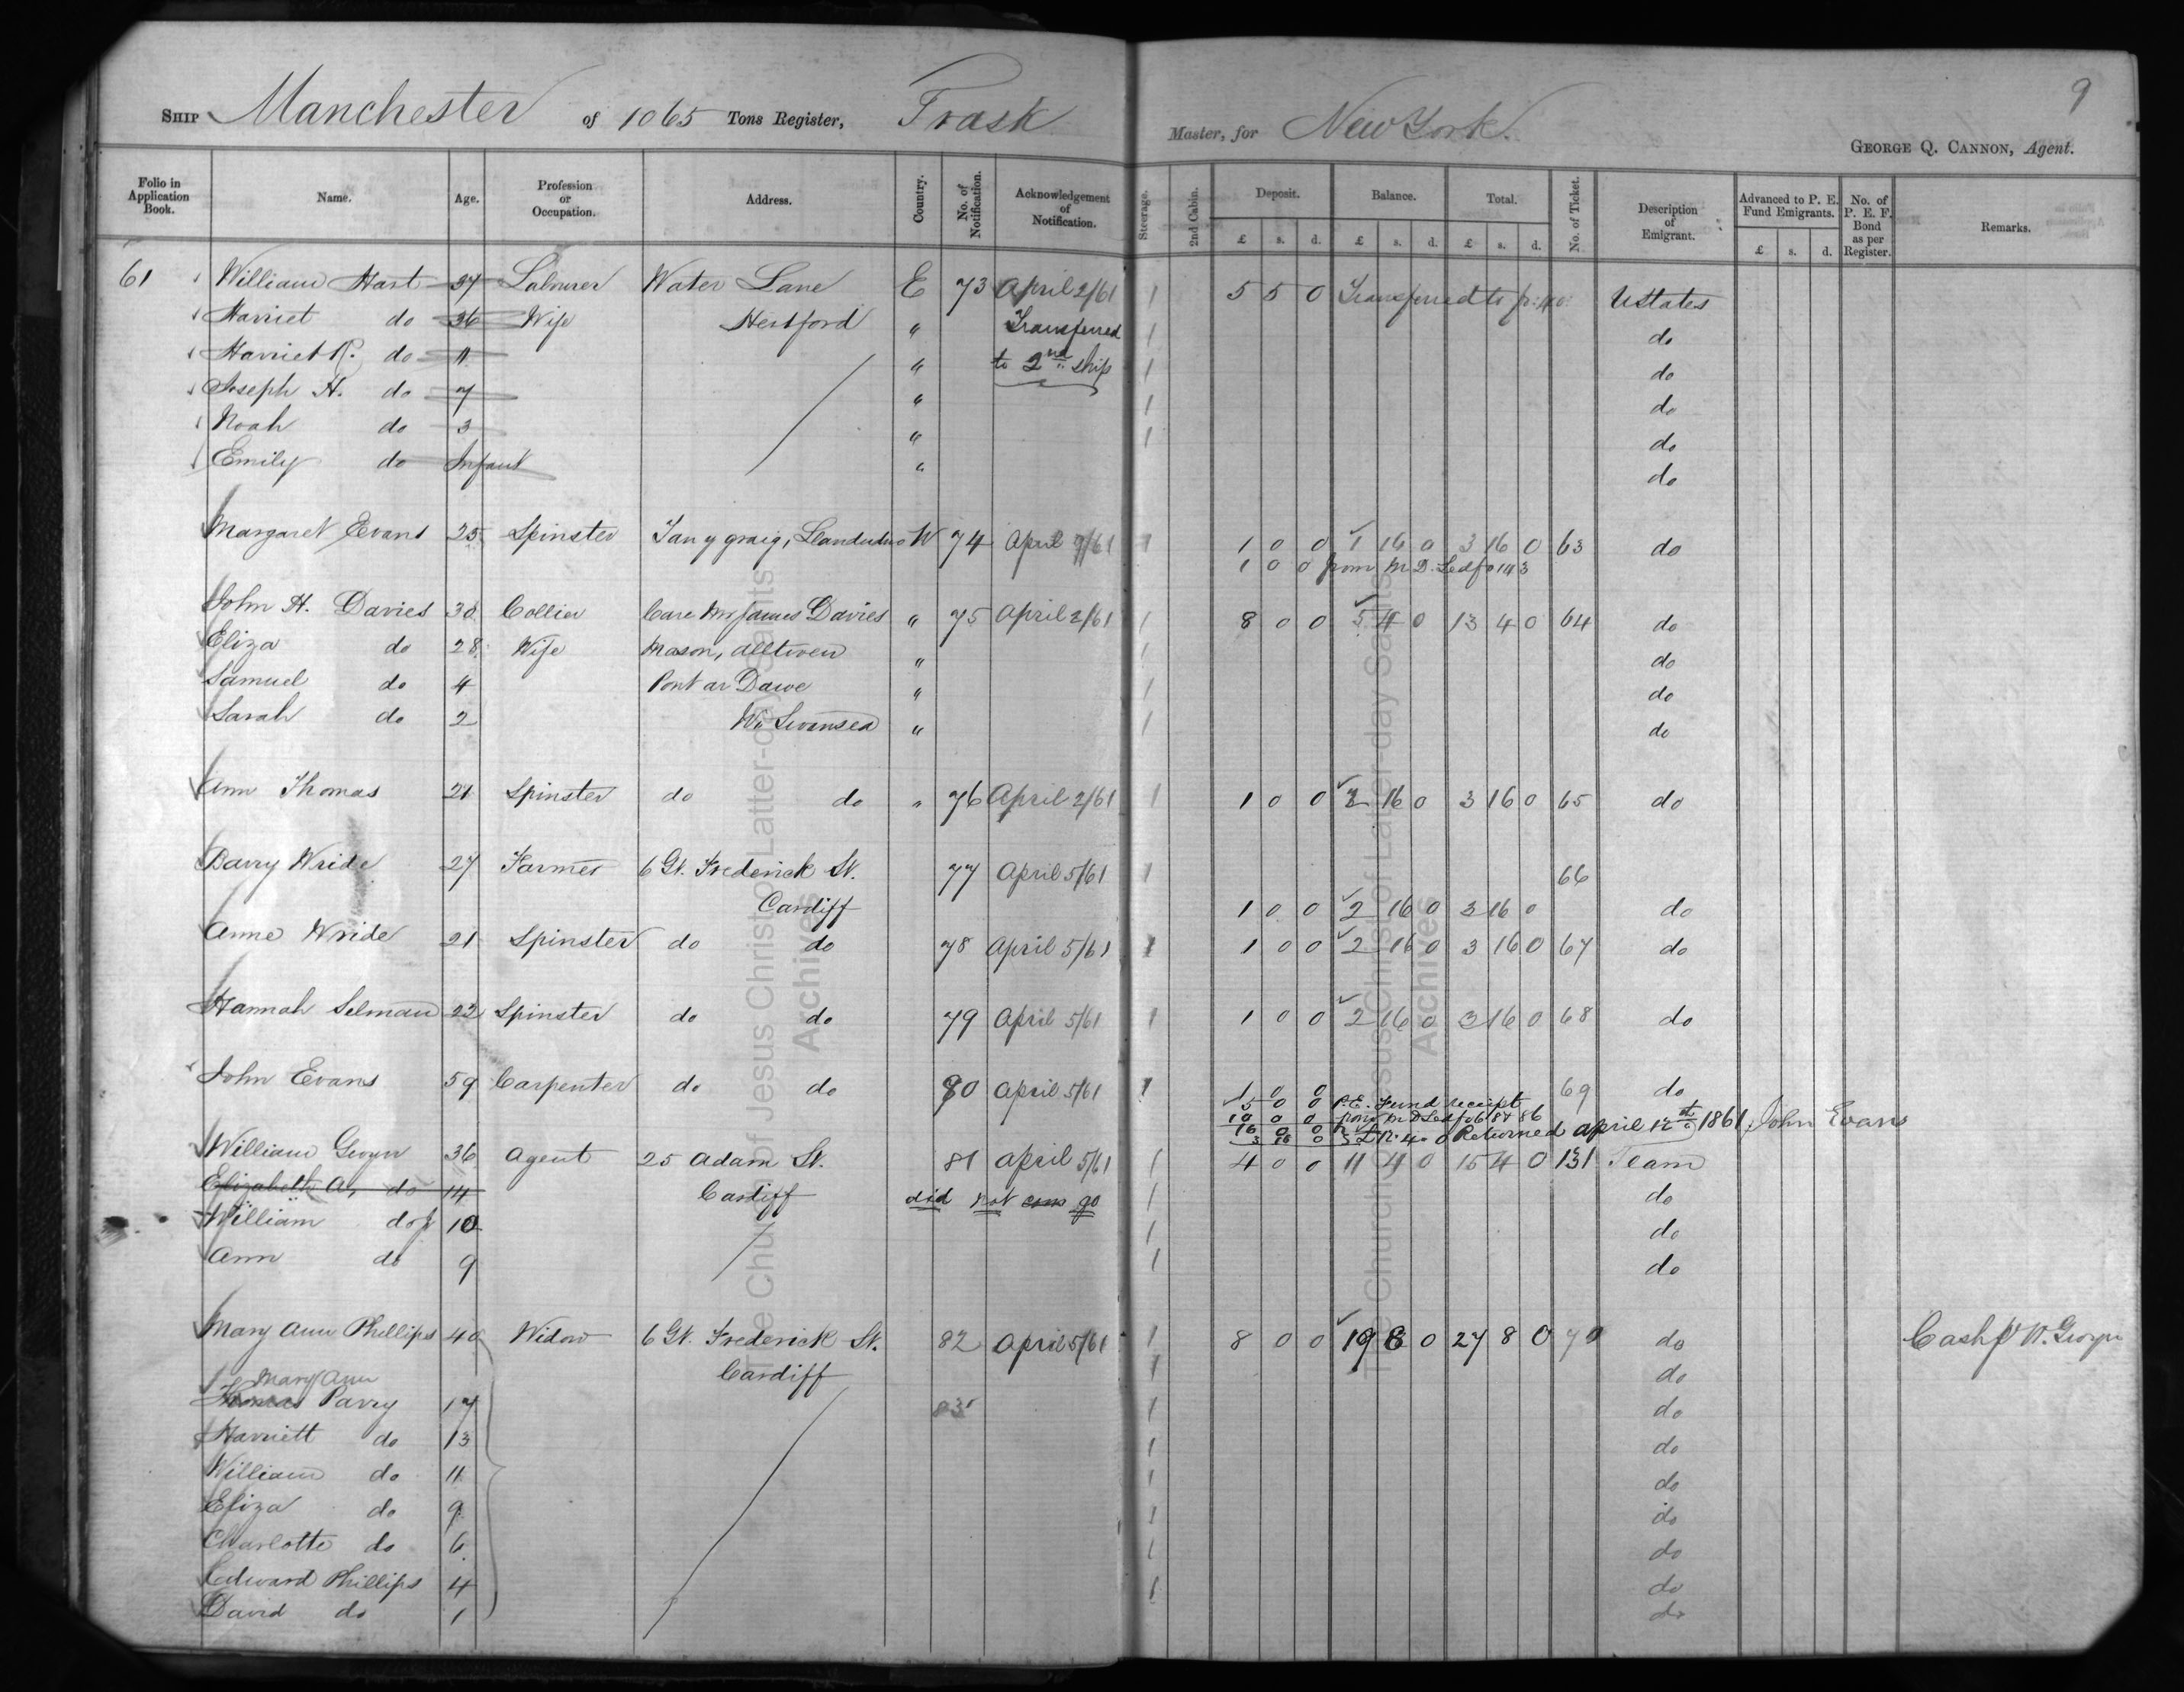 9
SHIP Manchester of 1065 Tons Register, Trask Master, for New York.
GEORGE Q. CANNON, Agent.
Folio in Application Book. Name. Age. Profession or Occupation. Address. Country. No. of Notification. Acknowledgement of Notification. Steerage. 2nd Cabin. Deposit. Balance. Total. No. of Ticket. Description of Emigrant. Advanced to P. E. Fund Emigrants. No. of P. E. F. Bond as per Register. Remarks.
£ s. d. £ s. d. £ s. d. £ s. d.
61 William Hart 37 Labourer Water Lane E 73 April 2/61 1 5 5 0 Transferred to p: 40 UStates
Harriet do 36 Wife Hertford " Transferred 1 do
Harriet R. do 11 " to 2nd ship 1 do
Joseph H. do 7 " 1 do
Noah do 3 " 1 do
Emily do Infant " do
Margaret Evans 25 Spinster Tan y graig, Llandudno W 74 April 9/61 1 1 0 0 1 16 0 3 16 0 63 do
1 0 0 from M D. Led fo 143
John H. Davies 30 Collier Care Mr James Davies " 75 April 2/61 1 8 0 0 5 4 0 13 4 0 64 do
Eliza do 28 Wife Mason, Alltwen " 1 do
Samuel do 4 Pont ar Dawe " 1 do
Sarah do 2 Nr Swansea " 1 do
Ann Thomas 21 Spinster do do " 76 April 2/61 1 1 0 0 2 16 0 3 16 0 65 do
Barry Wride 27 Farmer 6 Gt. Frederick St. 77 April 5/61 1 66
Cardiff 1 0 0 2 16 0 3 16 0 do
Anne Wride 21 Spinster do do 78 April 5/61 1 1 0 0 2 16 0 3 16 0 67 do
Hannah Selman 22 Spinster do do 79 April 5/61 1 1 0 0 2 16 0 3 16 0 68 do
John Evans 59 Carpenter do do 80 April 5/61 1 1 0 0 69 do
5 0 0 P.E. Fund receipt
10 0 0 from M D Led fo
16 0 0
3 16 0 £12. 4. 0 Returned april 12 1861 John Evans
William Gwyn 36 Agent 25 Adam St. 81 April 5/61 1 4 0 0 11 4 0 15 4 0 131 Team
Elizabeth A, do 14 Cardiff did not go 1 do
William do Jr 10 1 do
Ann do 9 1 do
Mary Ann Phillips 40 Widow 6 Gt. Frederick St. 82 April 5/61 1 8 0 0 19 8 0 27 8 0 70 do Cash pr W. Gwyn
Cardiff 1 do
Mary Ann
Thomas Parry 17 83 1 do
Harriett do 13 1 do
William do 11 1 do
Eliza do 9 1 do
Charlotte do 6 1 do
Edward Phillips 4 1 do
David do 1 do
The Church of Jesus Christ of Latter-day Saints
Archives
The Church of Jesus Christ of Latter-day Saints
Archives